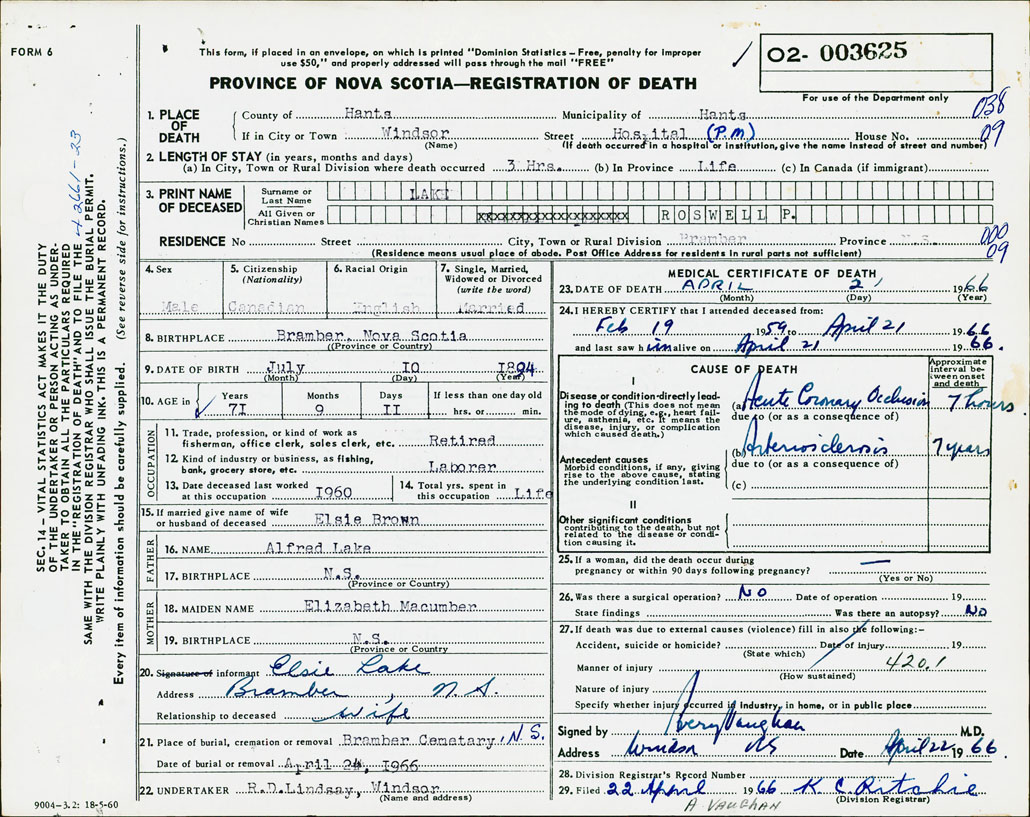 FORM 6
This form, if placed in an envelope, on which is printed "Dominion Statistics – Free, penalty for improper
use $50," and properly addressed will pass through the mail "FREE"
PROVINCE OF NOVA SCOTIA—REGISTRATION OF DEATH
02- 003625
For use of the Department only
038
09
1. PLACE OF DEATH
County of Hants Municipality of Hants
If in City or Town Windsor Street Hospital (P.M) House No.
(Name) (If death occurred in a hospital or institution, give the name instead of street and number)
2. LENGTH OF STAY (in years, months and days)
(a) In City, Town or Rural Division where death occurred 3 Hrs. (b) In Province Life (c) In Canada (if immigrant)
3. PRINT NAME OF DECEASED
Surname or Last Name LAKE
All Given or Christian Names xxxxxxxxxxxxxxxxxx ROSWELL P.
RESIDENCE No Street City, Town or Rural Division Bramber Province N.S.
(Residence means usual place of abode. Post Office Address for residents in rural parts not sufficient)
000
09
4. Sex
Male
5. Citizenship
(Nationality)
Canadian
6. Racial Origin
English
7. Single, Married,
Widowed or Divorced
(write the word)
Married
8. BIRTHPLACE Bramber, Nova Scotia
(Province or Country)
9. DATE OF BIRTH July 10 1894
(Month) (Day) (Year)
10. AGE in Years Months Days If less than one day old
71 9 11 hrs. or min.
OCCUPATION
11. Trade, profession, or kind of work as
fisherman, office clerk, sales clerk, etc. Retired
12. Kind of industry or business, as fishing,
bank, grocery store, etc. Laborer
13. Date deceased last worked
at this occupation 1960
14. Total yrs. spent in
this occupation Life
15. If married give name of wife
or husband of deceased Elsie Brown
FATHER
16. NAME Alfred Lake
17. BIRTHPLACE N.S.
(Province or Country)
MOTHER
18. MAIDEN NAME Elizabeth Macumber
19. BIRTHPLACE N.S.
(Province or Country
20. Signature of informant Elsie Lake
Address Bramber, N.S.
Relationship to deceased Wife
21. Place of burial, cremation or removal Bramber Cemetary, N.S.
Date of burial or removal April 24, 1966
22. UNDERTAKER R.D.Lindsay, Windsor
(Name and address)
MEDICAL CERTIFICATE OF DEATH
23. DATE OF DEATH APRIL 21 1966
(Month) (Day) (Year)
24. I HEREBY CERTIFY that I attended deceased from:
Feb 19 1959 to April 21 1966
and last saw him alive on April 21 1966.
CAUSE OF DEATH
Approximate
interval be-
tween onset
and death
I
Disease or condition directly lead-
ing to death (This does not mean
the mode of dying, e.g., heart fail-
ure, asthenia, etc. It means the
disease, injury, or complication
which caused death.)
(a) Acute Coronary Occlusion 7 hours.
due to (or as a consequence of)
(b) Arteriosclerosis 7 years
Antecedent causes
Morbid conditions, if any, giving
rise to the above cause, stating
the underlying condition last.
due to (or as a consequence of)
(c)
II
Other significant conditions
contributing to the death, but not
related to the disease or condi-
tion causing it.
25. If a woman, did the death occur during
pregnancy or within 90 days following pregnancy? —
(Yes or No)
26. Was there a surgical operation? No Date of operation 19
State findings Was there an autopsy? No
27. If death was due to external causes (violence) fill in also the following:-
Accident, suicide or homicide? Date of injury 19
(State which)
Manner of injury 420.1
(How sustained)
Nature of injury
Specify whether injury occurred in industry, in home, or in public place
Signed by Avery Vaughan M.D.
Address Windsor NS Date April 22 1966
28. Division Registrar's Record Number
29. Filed 22 April 1966 K C Ritchie
(Division Registrar)
A VAUGHAN
SEC. 14 – VITAL STATISTICS ACT MAKES IT THE DUTY
OF THE UNDERTAKER OR PERSON ACTING AS UNDER-
TAKER TO OBTAIN ALL THE PARTICULARS REQUIRED
IN THE "REGISTRATION OF DEATH" AND TO FILE THE
SAME WITH THE DIVISION REGISTRAR WHO SHALL ISSUE THE BURIAL PERMIT.
WRITE PLAINLY WITH UNFADING INK. THIS IS A PERMANENT RECORD.
Every item of information should be carefully supplied. (See reverse side for instructions.)
9004-3.2: 18-5-60